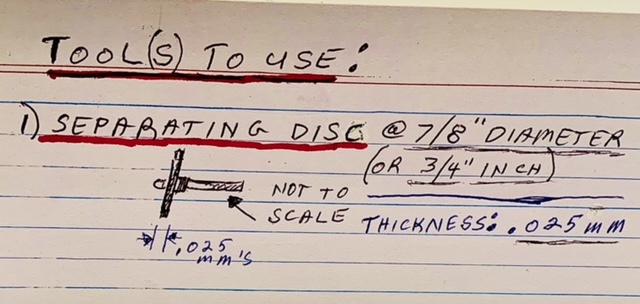 TOOL(S) TO USE:
1) SEPARATING DISC @ 7/8" DIAMETER
(OR 3/4" INCH)
NOT TO
SCALE
THICKNESS: .025 mm
.025
mm's